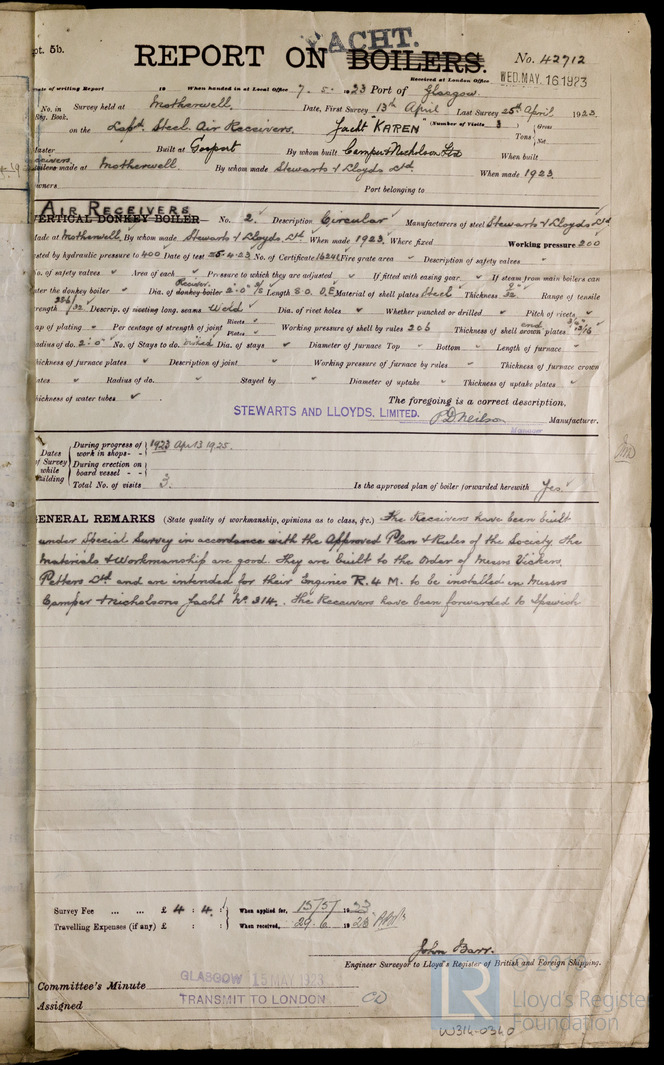 pt. 5b.
YACHT.
REPORT ON BOILERS.
No. 42712
Received at London Office WED. MAY 16 1923
ate of writing Report 19 When handed in at Local Office 7. 5. 1923 Port of Glasgow.
No. in Reg. Book. Survey held at Motherwell. Date, First Survey 13th April Last Survey 25th April, 1923.
on the Steel Air Receivers. Yacht "KAREN" (Number of Visits 3) Tons Gross Net
Master Built at Gosport By whom built Camper & Nicholson Ltd When built
made at Motherwell. By whom made Stewarts & Lloyds Ltd. When made 1923.
wners Port belonging to
AIR RECEIVERS
VERTICAL DONKEY BOILER No. 2. Description Circular Manufacturers of steel Stewarts & Lloyds Ltd
Made at Motherwell. By whom made Stewarts & Lloyds. Ltd. When made 1923. Where fixed Working pressure 200
ested by hydraulic pressure to 400 Date of test 25-4-23 No. of Certificate 16241 Fire grate area " Description of safety valves "
No. of safety valves Area of each " Pressure to which they are adjusted If fitted with easing gear If steam from main boilers can
nter the donkey boiler " Dia. of donkey boiler Receiver 2'-0" Length 8-0 Material of shell plates Steel Thickness 9/32 Range of tensile
trength Descrip. of riveting long. seams Weld Dia. of rivet holes Whether punched or drilled Pitch of rivets
ap of plating " Per centage of strength of joint Rivets Plates Working pressure of shell by rules 206 Thickness of shell crown plates end
Radius of do. 2'-0" No. of Stays to do. Dished Dia. of stays Diameter of furnace Top Bottom Length of furnace
hickness of furnace plates Description of joint Working pressure of furnace by rules " Thickness of furnace crown
ates Radius of do. Stayed by Diameter of uptake Thickness of uptake plates
hickness of water tubes
The foregoing is a correct description,
STEWARTS AND LLOYDS, LIMITED. P D Neilson Manufacturer.
Manager
Dates of Survey while building
During progress of work in shops - - 1923 Apr 13 19 25.
During erection on board vessel - -
Total No. of visits 3. Is the approved plan of boiler forwarded herewith Yes
GENERAL REMARKS (State quality of workmanship, opinions as to class, &c.) The Receivers have been built
under Special Survey in accordance with the Approved Plan & Rules of the Society. The
Materials & Workmanship are good. They are built to the Order of Messrs Vickers.
Petters Ltd. and are intended for their Engines R. 4 M. to be installed in Messrs
Camper & Nicholsons Yacht No. 314. The Receivers have been forwarded to Ipswich
Survey Fee ... ... £ 4 : 4 : When applied for, 15/5/1923
Travelling Expenses (if any) £ : : When received, 29. 6. 1923
John Barr.
Engineer Surveyor to Lloyd's Register of British and Foreign Shipping.
Committee's Minute GLASGOW 15 MAY 1923
Assigned TRANSMIT TO LONDON
LR
Lloyd's Register
Foundation
W314-0340